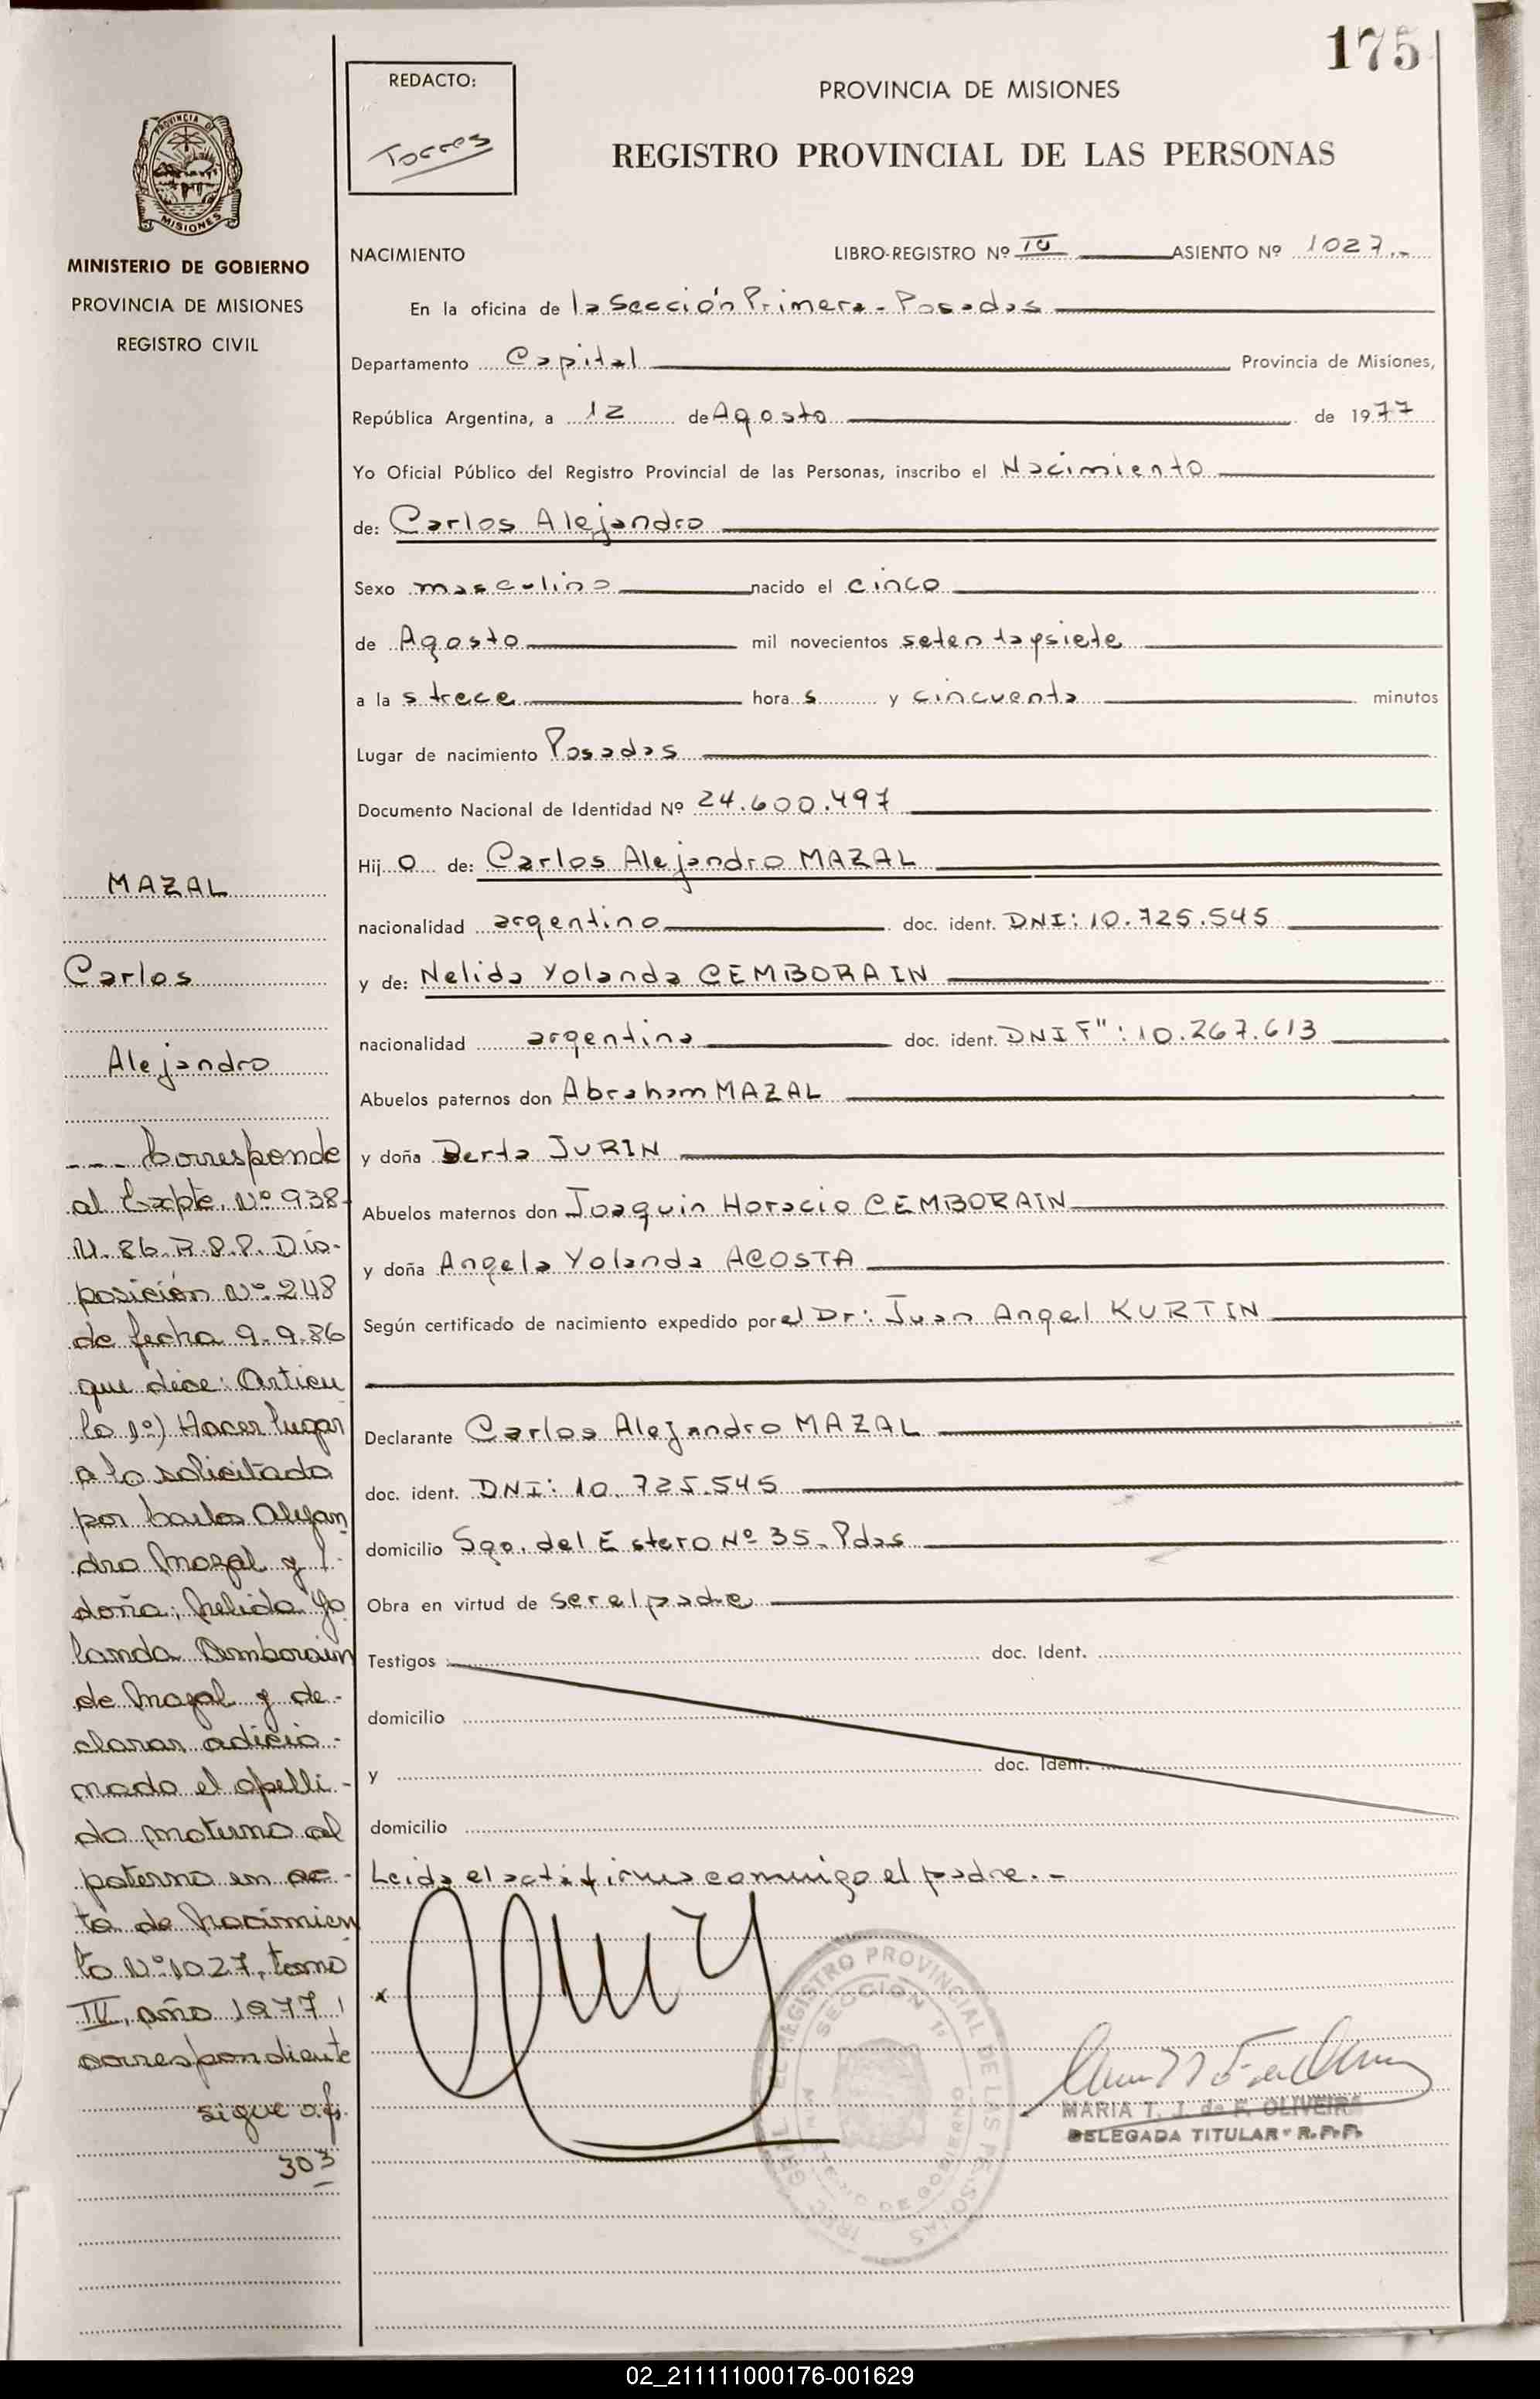 175
REDACTO:
Torres
PROVINCIA DE MISIONES
REGISTRO PROVINCIAL DE LAS PERSONAS
PROVINCIA DE
MISIONES
MINISTERIO DE GOBIERNO
PROVINCIA DE MISIONES
REGISTRO CIVIL
NACIMIENTO LIBRO-REGISTRO Nº IV ASIENTO Nº 1027.-
En la oficina de la Sección Primera - Posadas
Departamento Capital Provincia de Misiones,
República Argentina, a 12 de Agosto de 1977
Yo Oficial Público del Registro Provincial de las Personas, inscribo el Nacimiento
de: Carlos Alejandro
Sexo masculino nacido el cinco
de Agosto mil novecientos setentaysiete
a la s trece hora s y cincuenta minutos
Lugar de nacimiento Posadas
Documento Nacional de Identidad Nº 24.600.497
Hij o de: Carlos Alejandro MAZAL
nacionalidad argentino doc. ident. DNI: 10.725.545
y de: Nelida Yolanda CEMBORAIN
nacionalidad argentina doc. ident. DNI F": 10.267.613
Abuelos paternos don Abraham MAZAL
y doña Berta JURIN
Abuelos maternos don Joaquin Horacio CEMBORAIN
y doña Angela Yolanda ACOSTA
Según certificado de nacimiento expedido por el Dr: Juan Angel KURTIN
Declarante Carlos Alejandro MAZAL
doc. ident. DNI: 10.725.545
domicilio Sgo. del Estero Nº 35 - Pdas
Obra en virtud de ser el padre
Testigos doc. Ident.
domicilio
y doc. Ident.
domicilio
Leida el acta firma conmigo el padre.-
MAZAL
Carlos
Alejandro
--- Corresponde
al Expte. Nº 938-
M. 86 R.P.P. Dis-
posición Nº 248
de fecha 9.9.86
que dice: Articu
lo 1º) Hacer lugar
a lo solicitado
por Carlos Alejan
dro Mazal y
doña; Nelida Yo
landa Cemborain
de Mazal y de-
clarar adicio-
nado el apelli-
do materno al
paterno en ac-
ta de Nacimien
to Nº 1027, tomo
IV, año 1977
correspondiente
sigue a fj.
303
REGISTRO PROVINCIAL DE LAS PERSONAS
SECCION 1ª
MARIA T. J. de F. OLIVEIRA
DELEGADA TITULAR - R.P.P.
02_211111000176-001629